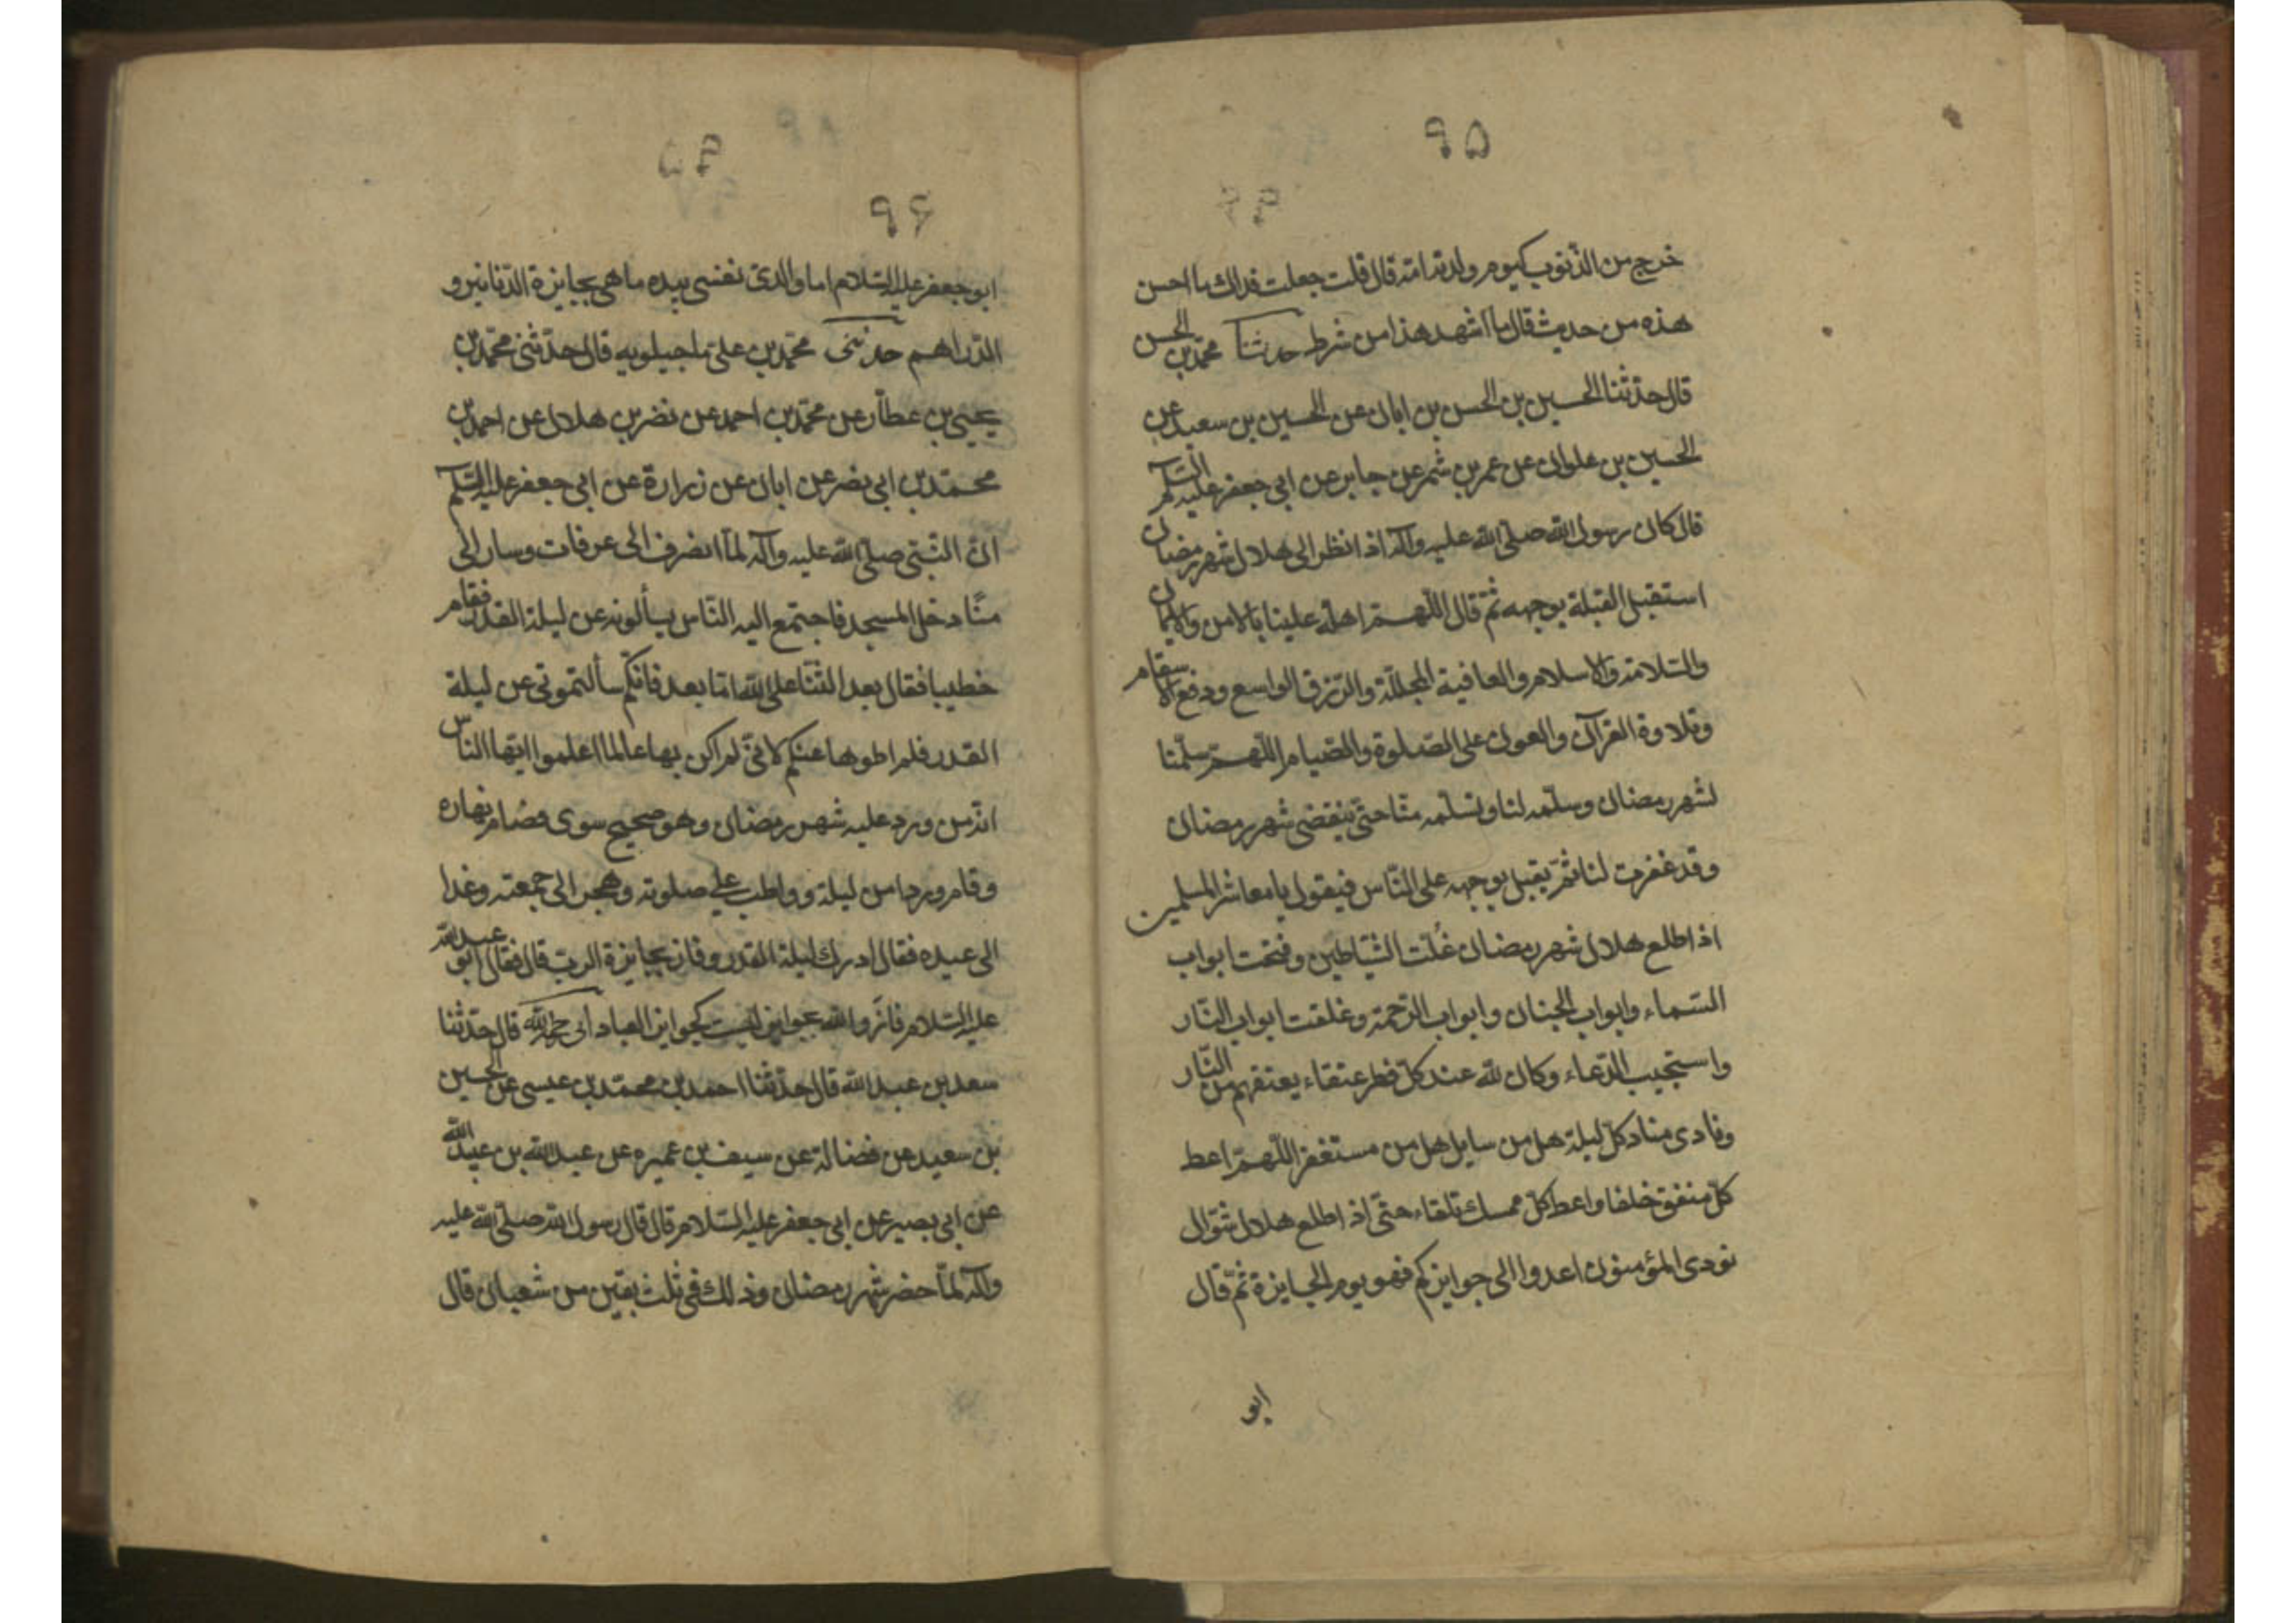 ٩٥
خرج من الذنوب كيوم ولدته امّه قال قلت جعلت فداك ما احسن
هذه من حديث قال ما اشهد هذا من شرط حدثنا محمّد بن الحسن
قال حدّثنا الحسين بن الحسن بن ابان عن الحسين بن سعيد عن
الحسين بن علوان عن عمر بن شمر عن جابر عن ابى جعفر عليه السّلام
قال كان رسول الله صلّى الله عليه وآله اذا نظر الى هلال شهر رمضان
استقبل القبلة بوجهه ثمّ قال اللّهمّ اهلّه علينا بالامن والايمان
والسّلامة والاسلام والعافية المجلّلة والرّزق الواسع ودفع الاسقام
وتلاوة القرآن والعون على الصّلوة والصّيام اللّهمّ سلّمنا
لشهر رمضان وسلّمه لنا وتسلّمه منّا حتّى ينقضى شهر رمضان
وقد غفرت لنا ثمّ يقبل بوجهه على النّاس فيقول يا معاشر المسلمين
اذا طلع هلال شهر رمضان غُلّت الشّياطين وفتحت ابواب
السّماء وابواب الجنان وابواب الرّحمة وغلقت ابواب النّار
واستجيب الدّعاء وكان لله عند كلّ فطر عتقاء يعتقهم من النّار
ونادى مناد كلّ ليلة هل من سايل هل من مستغفر اللّهمّ اعط
كلّ منفق خلفا واعط كلّ ممسك تلفاء حتّى اذا طلع هلال شوّال
نودى المؤمنون اغدوا الى جوايزكم فهو يوم الجايزة ثمّ قال
ابو
٩۶
ابو جعفر عليه السّلام اما والّذى نفسى بيده ما هى بجايزة الدّنانير و
الدّراهم حدثنى محمّد بن على ماجيلويه قال حدّثنى محمّد بن
يحيى بن عطّار عن محمّد بن احمد عن نضر بن هلال عن احمد بن
محمّد بن ابى نصر عن ابان عن زرارة عن ابى جعفر عليه السّلم
انّ النّبىّ صلّى الله عليه وآله لمّا انصرف الى عرفات وسار الى
منًا دخل المسجد فاجتمع اليه النّاس يسألونه عن ليلة القدر فقام
خطيبا فقال بعد الثّنا على الله امّا بعد فانّكم سألتمونى عن ليلة
القدر فلم اطوها عنكم لانّى لم اكن بها عالما اعلموا ايّها النّاس
انّه من ورد عليه شهر رمضان وهو صحيح سوى فصام نهاره
وقام وردا من ليلة وواظب على صلوته وهجر الى جمعته وغدا
الى عيده فقال ادرك ليلة القدر وفاز بجايزة الرب قال فقال ابو عبد الله
عليه السّلام فازوا والله بجوايز ليست كجوايز العباد ابى رحمه الله قال حدّثنا
سعد بن عبد الله قال حدّثنا احمد بن محمّد بن عيسى عن الحسين
بن سعيد عن فضالة عن سيف بن عميره عن عبد الله بن عبيد الله
عن ابى بصير عن ابى جعفر عليه السّلام قال قال رسول الله صلّى الله عليه
وآله لمّا حضر شهر رمضان وذلك فى ثلث بقين من شعبان قال